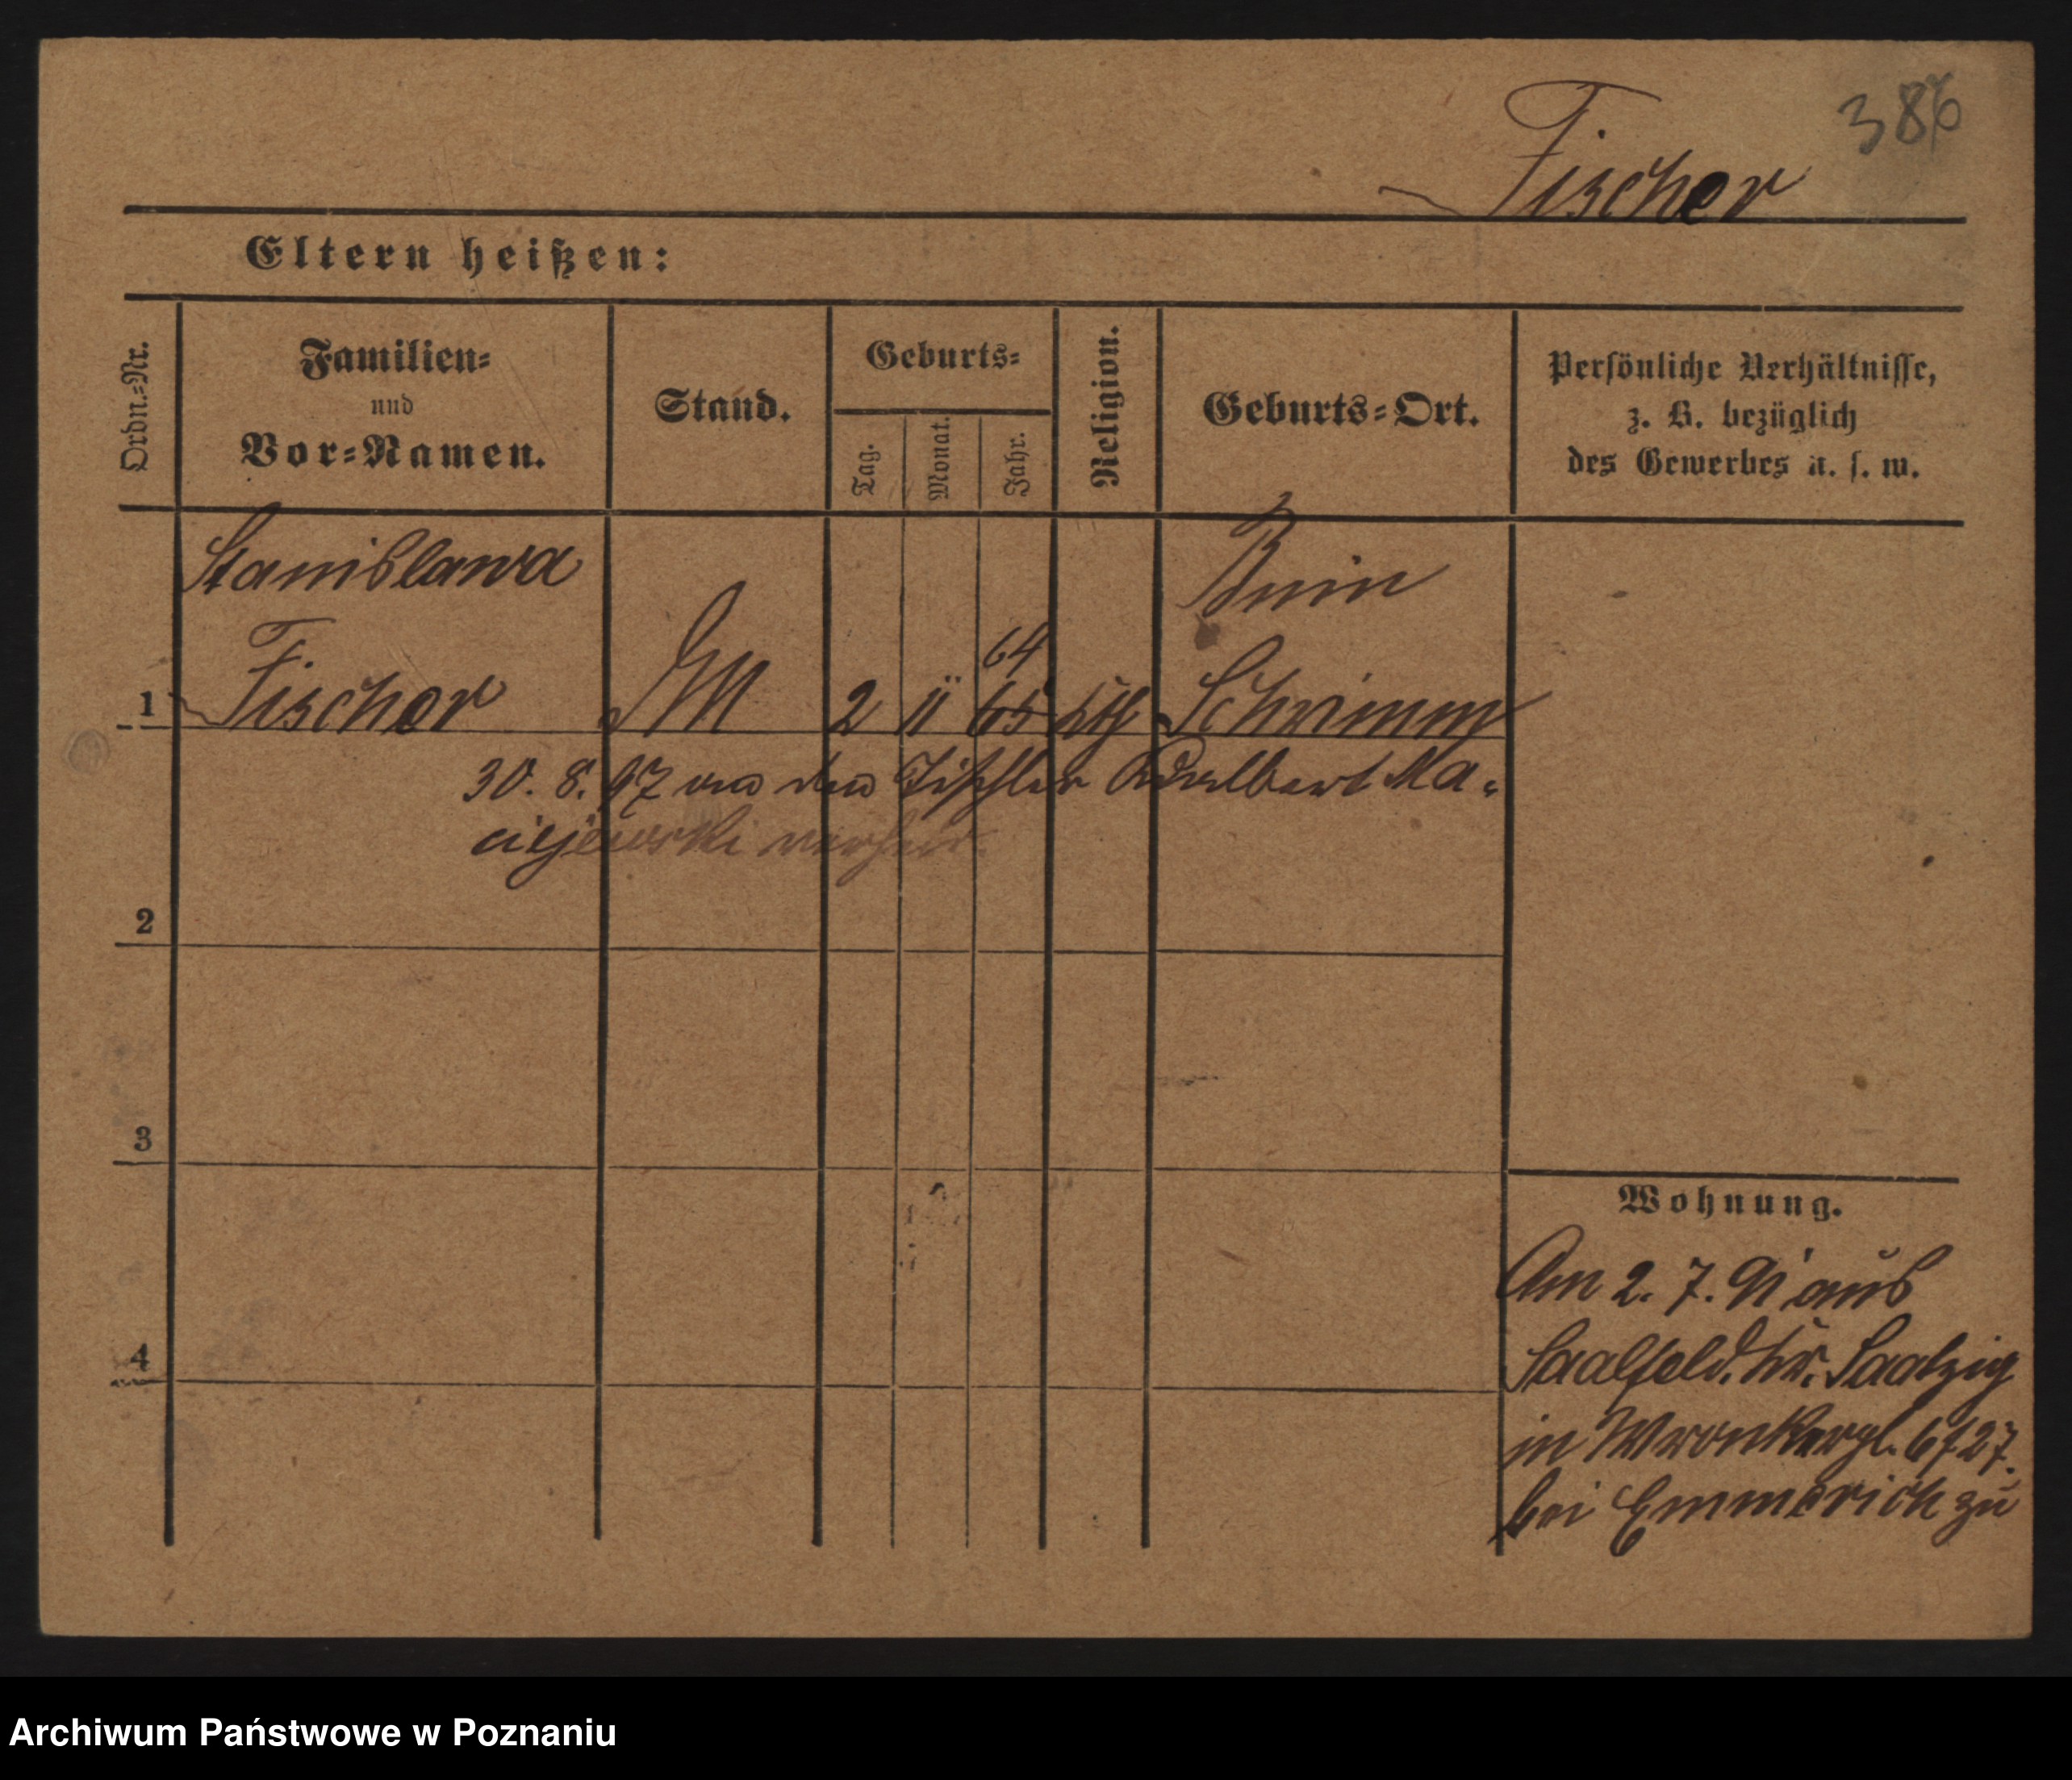 386
Fischer
Eltern heißen:
Ordn.-Nr.
Familien-
und
Vor-Namen.
Stand.
Geburts-
Tag.
Monat.
Jahr.
Religion.
Geburts-Ort.
Persönliche Verhältnisse,
z. B. bezüglich
des Gewerbes u. s. w.
Stanislawa
Bnin
64
1 Fischer M 2 11 65 kth Schrimm
30. 8. 97 an den Tischler Adalbert Ma-
ciejewski verheir.
2
3
4
Wohnung.
Am 2. 7. 91 aus
Saalfeld. Kr. Saatzig
in Wronkergl.
bei Emmerich zu
Archiwum Państwowe w Poznaniu